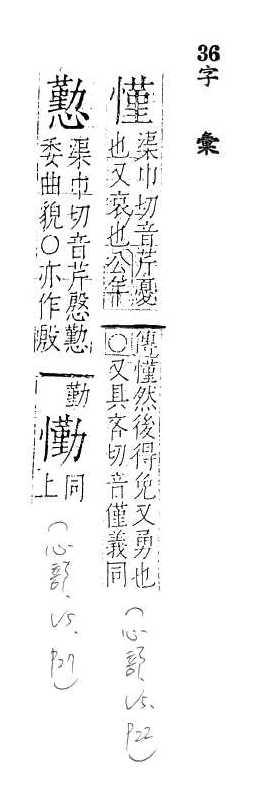 36字彙
慬
渠巾切音芹憂
也又哀也公羊
傳慬然後得免又勇也
○又具吝切音僅義同
(心部、V5. P22)
懃
渠巾切音芹慇懃
委曲貌○亦作殷
勤
懄
同
上
(心部、V5. P27)